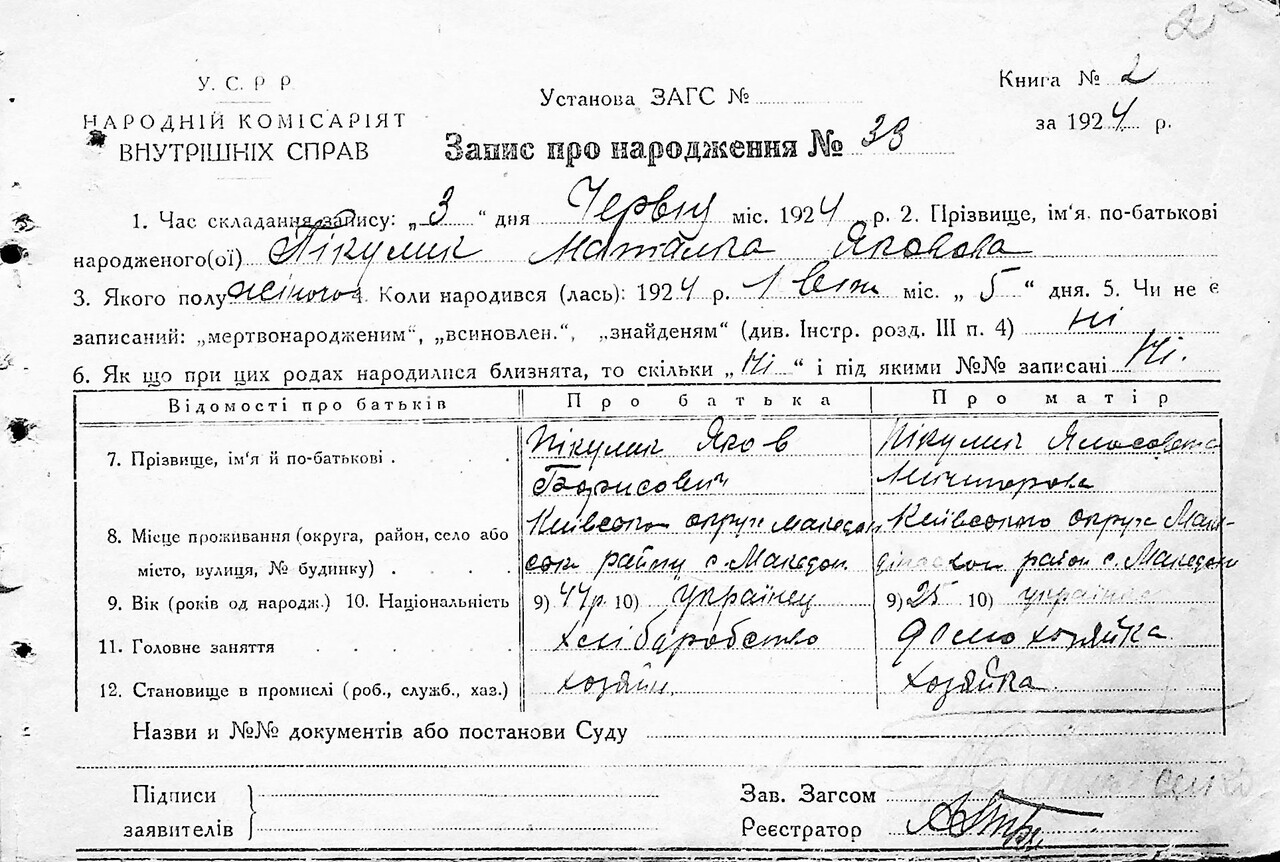 2
У. С. Р Р
НАРОДНІЙ КОМІСАРІЯТ
ВНУТРІШНІХ СПРАВ
Установа ЗАГС №
Книга № 2
за 1924 р.
Запис про народження № 33
1. Час складання запису: „3“ дня Червня міс. 1924 р. 2. Прізвище, ім'я. по-батькові
народженого(ої) Пікулик Наталка Яковова
3. Якого полу жіного 4. Коли народився (лась): 1924 р. міс. „5“ дня. 5. Чи не є
записаний: „мертвонародженим“, „всиновлен.“, „знайденям“ (див. Інстр. розд. III п. 4) ні
6. Як що при цих родах народилися близнята, то скільки „Ні“ і під якими №№ записані Ні.
Відомості про батьків Про батька Про матір
7. Прізвище, ім'я й по-батькові . Пікулик Яков Пікулик
Борисович
8. Місце проживання (округа, район, село або Київської округ Македон Київського округ
місто, вулиця, № будинку) . район с. Македон район с. Македон
9. Вік (років од народж.) 10. Національність 9) 44 р. 10) українец 9) 25 10) українка
11. Головне заняття хліборобство домохозяйка
12. Становище в промислі (роб., служб., хаз.) хозяин. хозяйка
Назви и №№ документів або постанови Суду
Підписи
заявителів
Зав. Загсом
Реєстратор